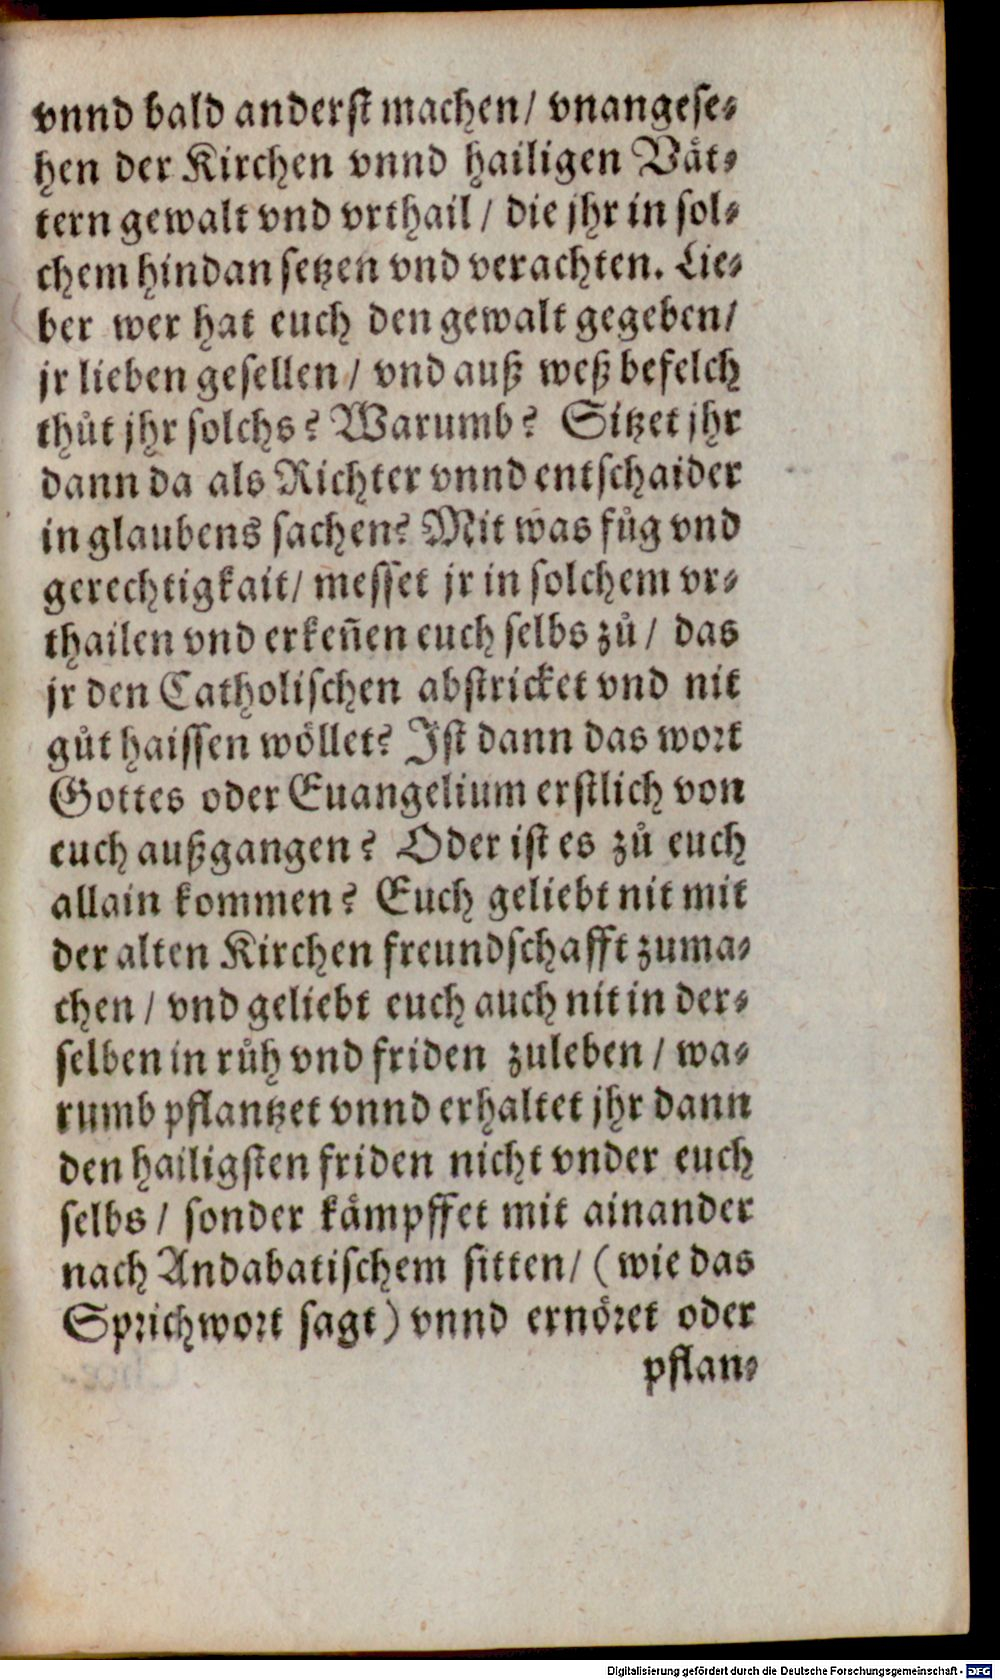 vnnd bald anderst machen/ vnangese⸗
hen der Kirchen vnnd hailigen Vät⸗
tern gewalt vnd vrthail / die jhr in sol⸗
chem hindan setzen vnd verachten. Lie⸗
ber wer hat euch den gewalt gegeben/
jr lieben gesellen / vnd auß weß befelch
thůt jhr solchs? Warumb? Sitzet jhr
dann da als Richter vnnd entschaider
in glaubens sachen? Mit was fůg vnd
gerechtigkait/ messet jr in solchem vr⸗
thailen vnd erkeñen euch selbs zů / das
jr den Catholischen abstricket vnd nit
gůt haissen wöllet? Ist dann das wort
Gottes oder Euangelium erstlich von
euch außgangen? Oder ist es zů euch
allain kommen? Euch geliebt nit mit
der alten Kirchen freundschafft zuma⸗
chen / vnd geliebt euch auch nit in der⸗
selben in růh vnd friden zuleben / wa⸗
rumb pflantzet vnnd erhaltet jhr dann
den hailigsten friden nicht vnder euch
selbs / sonder kämpffet mit ainander
nach Andabatischem sitten/ (wie das
Sprichwort sagt) vnnd ernöret oder
pflan⸗
Digitalisierung gefördert durch die Deutsche Forschungsgemeinschaft - DFG